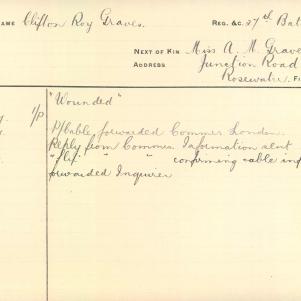 NAME Clifton Roy Graves. REG. &C. 27th Bat
NEXT OF KIN Miss A. M. Grave
ADDRESS Junction Road
Rosewater.
"Wounded"
P/Cable forwarded Commr London.
Reply from Commr. Information sent
" " " confirming cable inf
forwarded Inquirer